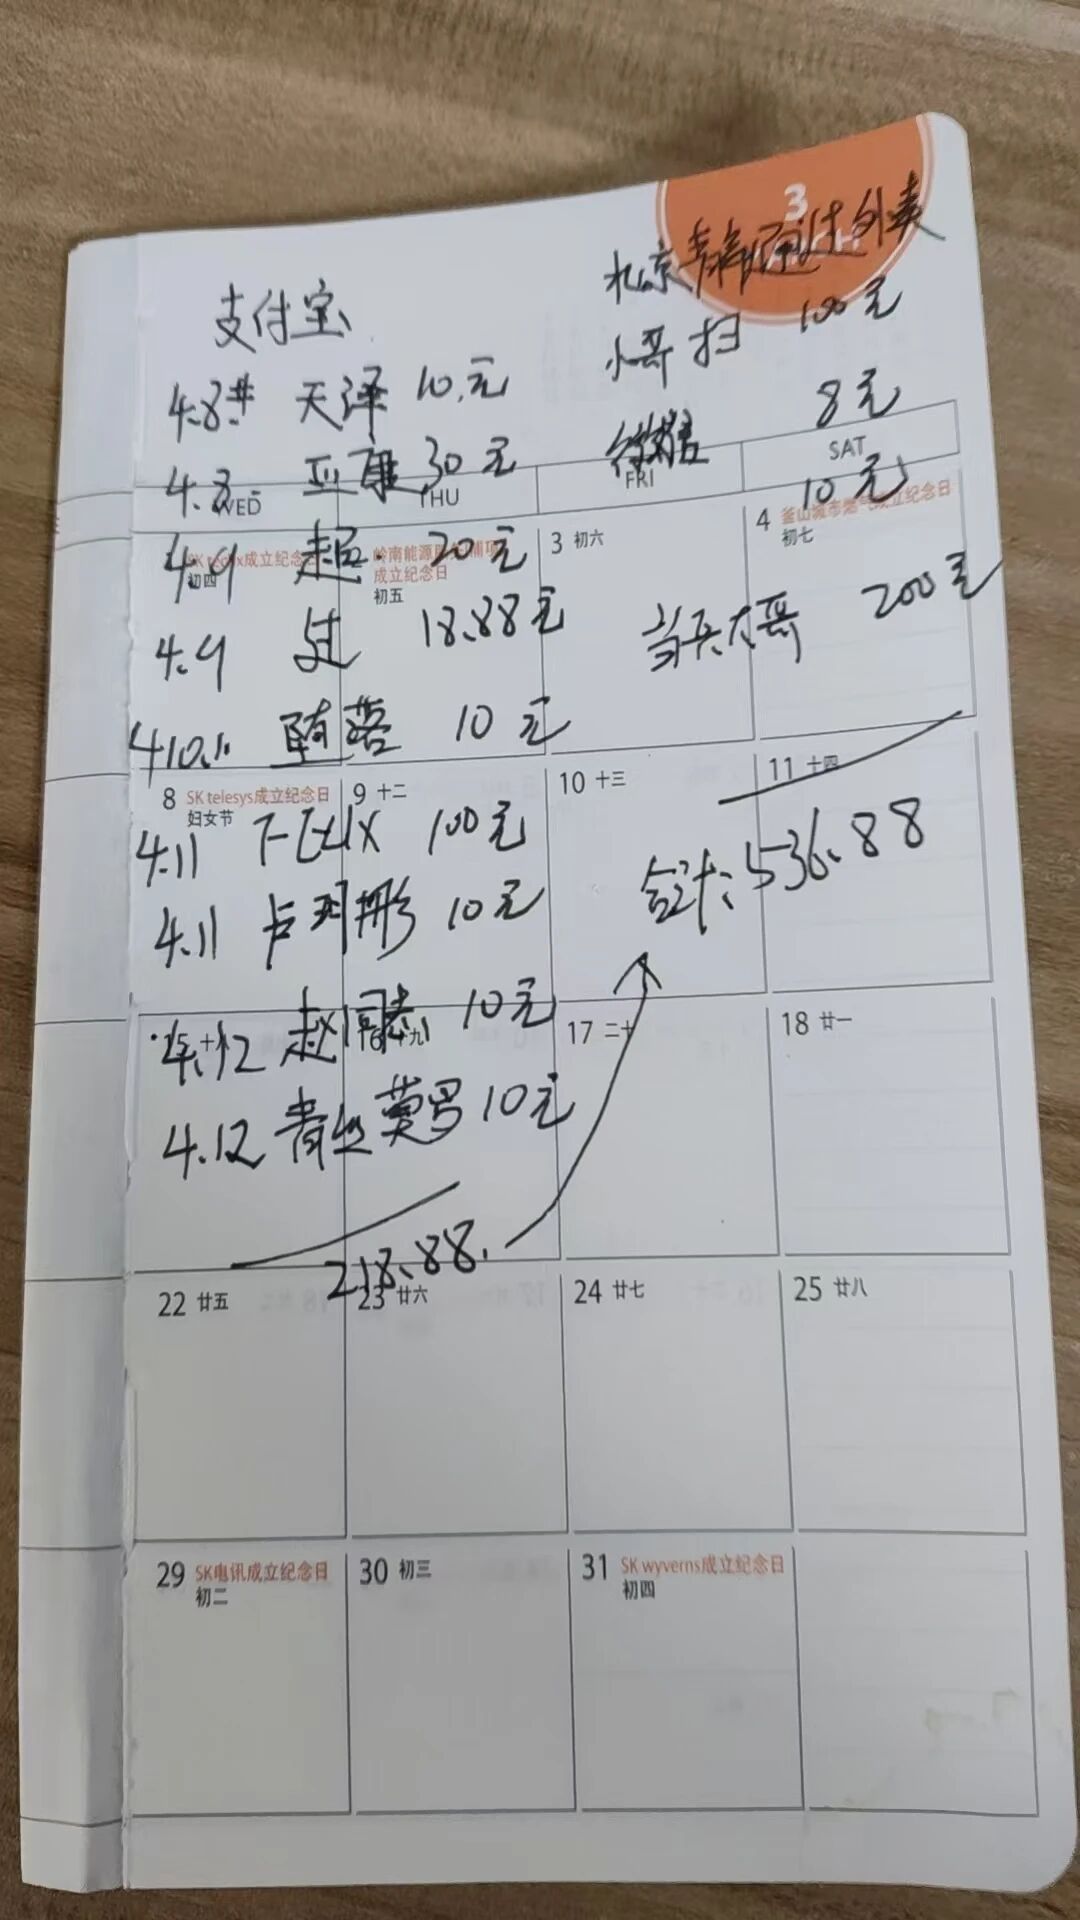 3
支付宝
4.8 天泽 10元
4.8 亚康 30元
4.9 超 20元
4.9 过 18.88元
4.10 堕落 10元
4.11 100元
4.11 卢珂彤 10元
4.12 赵同志 10元
4.12 青丝萝 10元
218.88
北京 通过外卖
小哥扫 100元
微信 8元
10元
当兵大哥 200元
合计: 536.88
WED THU FRI SAT
初四
岭南能源
成立纪念日
初五
3 初六
4 釜山城市燃气成立纪念日
初七
8 SK telesys成立纪念日
妇女节
9 十二
10 十三
11 十四
17 二十
18 廿一
22 廿五
23 廿六
24 廿七
25 廿八
29 SK电讯成立纪念日
初二
30 初三
31 SK wyverns成立纪念日
初四